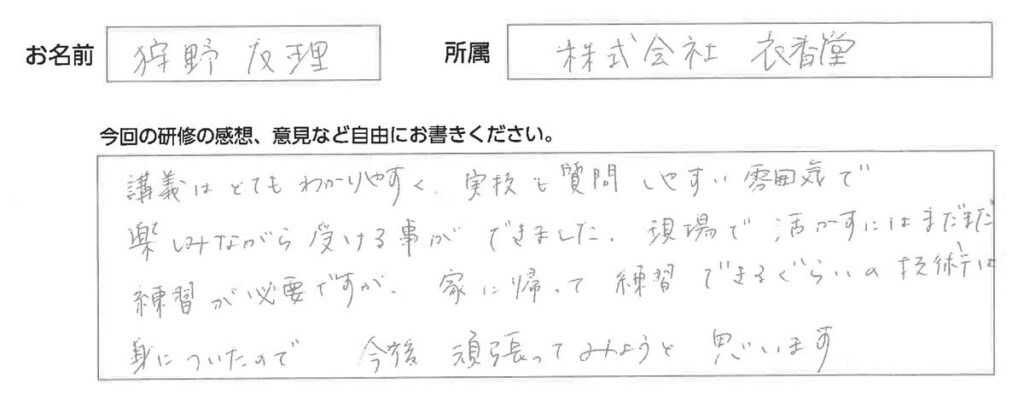 お名前 狩野 友理 所属 株式会社 衣香堂
今回の研修の感想、意見など自由にお書きください。
講義はとてもわかりやすく、実技も質問しやすい雰囲気で
楽しみながら受ける事ができました。現場で活かすにはまだまだ
練習が必要ですが、家に帰って練習できるぐらいの技術は
身についたので 今後頑張ってみようと思います